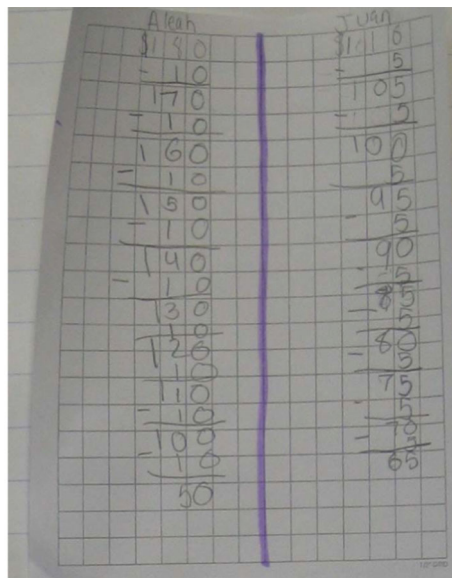 Aleah
$180
- 10
170
- 10
160
- 10
150
- 10
140
- 10
130
10
120
10
110
- 10
100
- 10
50
Juan
$110
- 5
105
- 5
100
5
95
- 5
90
- 5
85
- 5
80
- 5
75
- 5
- 70
65